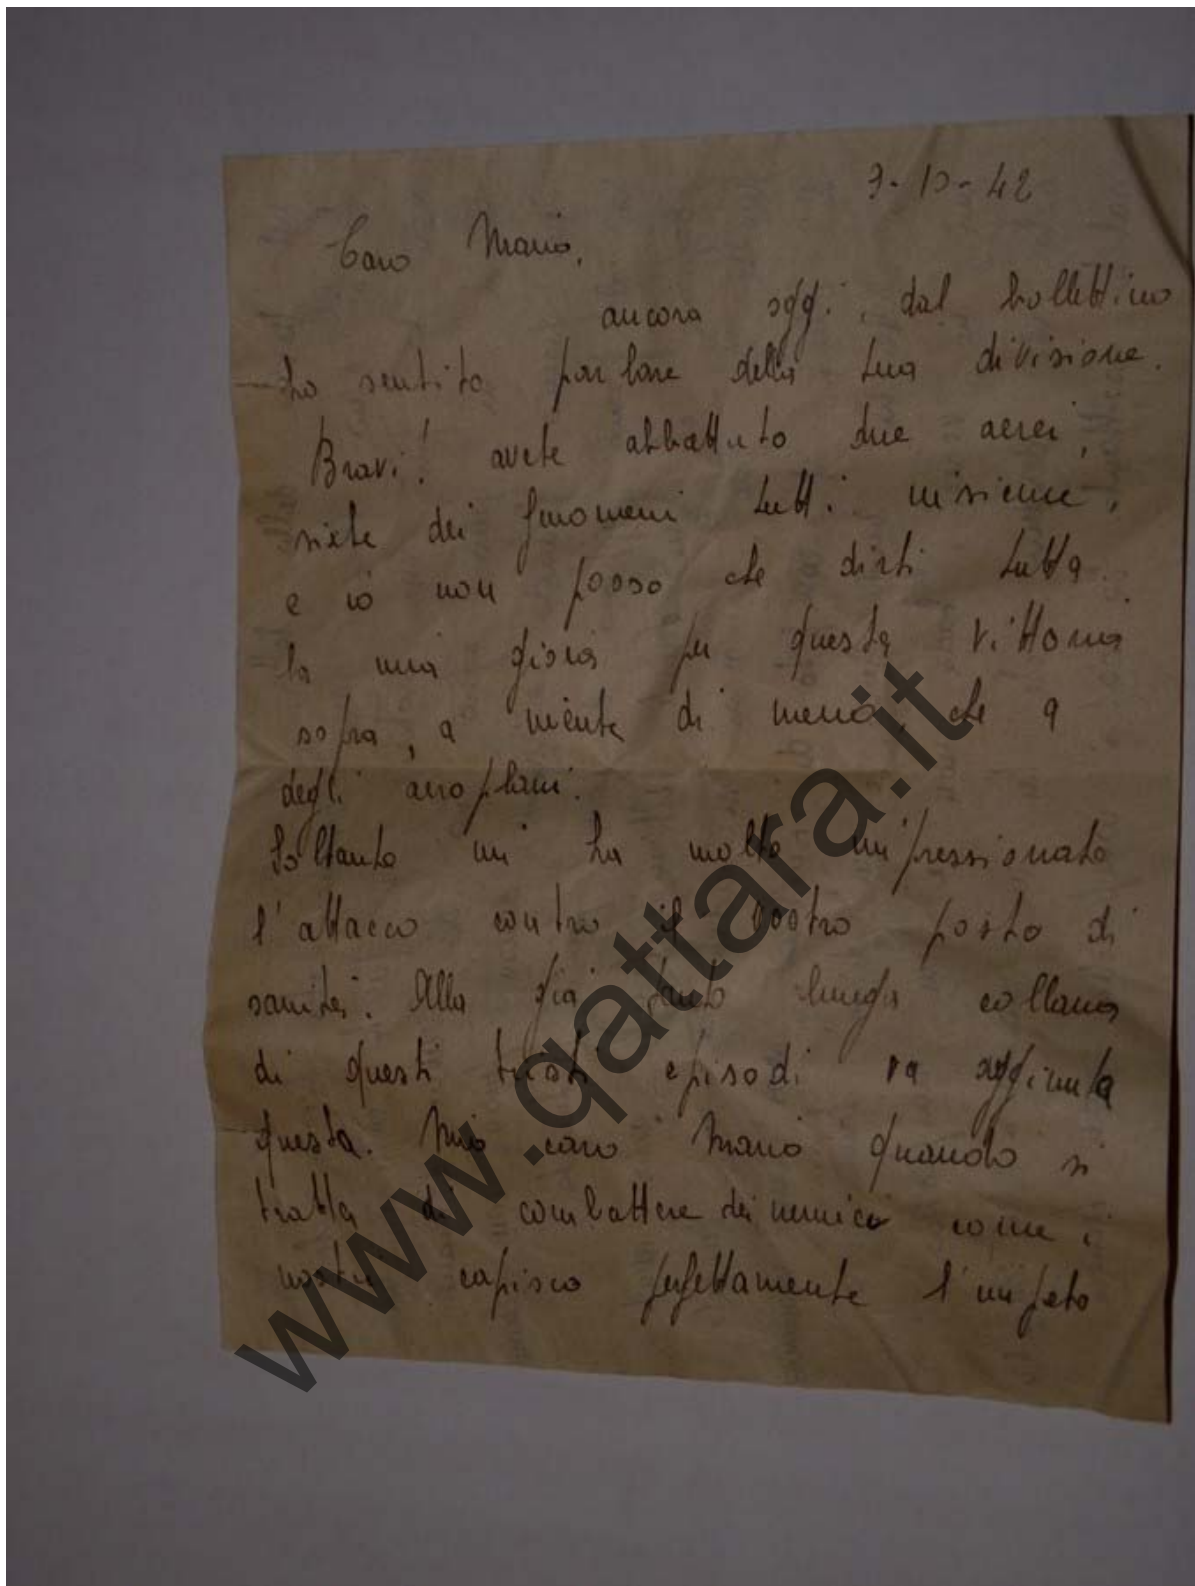 9-10-42
Caro Mario,
ancora oggi, dal bollettino
ho sentito parlare della tua divisione.
Bravi! avete abbattuto due aerei,
siete dei fenomeni tutti insieme,
e io non posso che dirti tutta
la mia gioia per questa vittoria
sopra, a niente di meno, che a
degli aeroplani.
Soltanto mi ha molto impressionato
l'attacco contro il vostro posto di
sanità. Alla già tanto lunga collana
di questi tristi episodi va aggiunta
questa. Mio caro Mario quando si
tratta di combattere dei nemici come i
nostri capisco perfettamente l'impeto
www.qattara.it